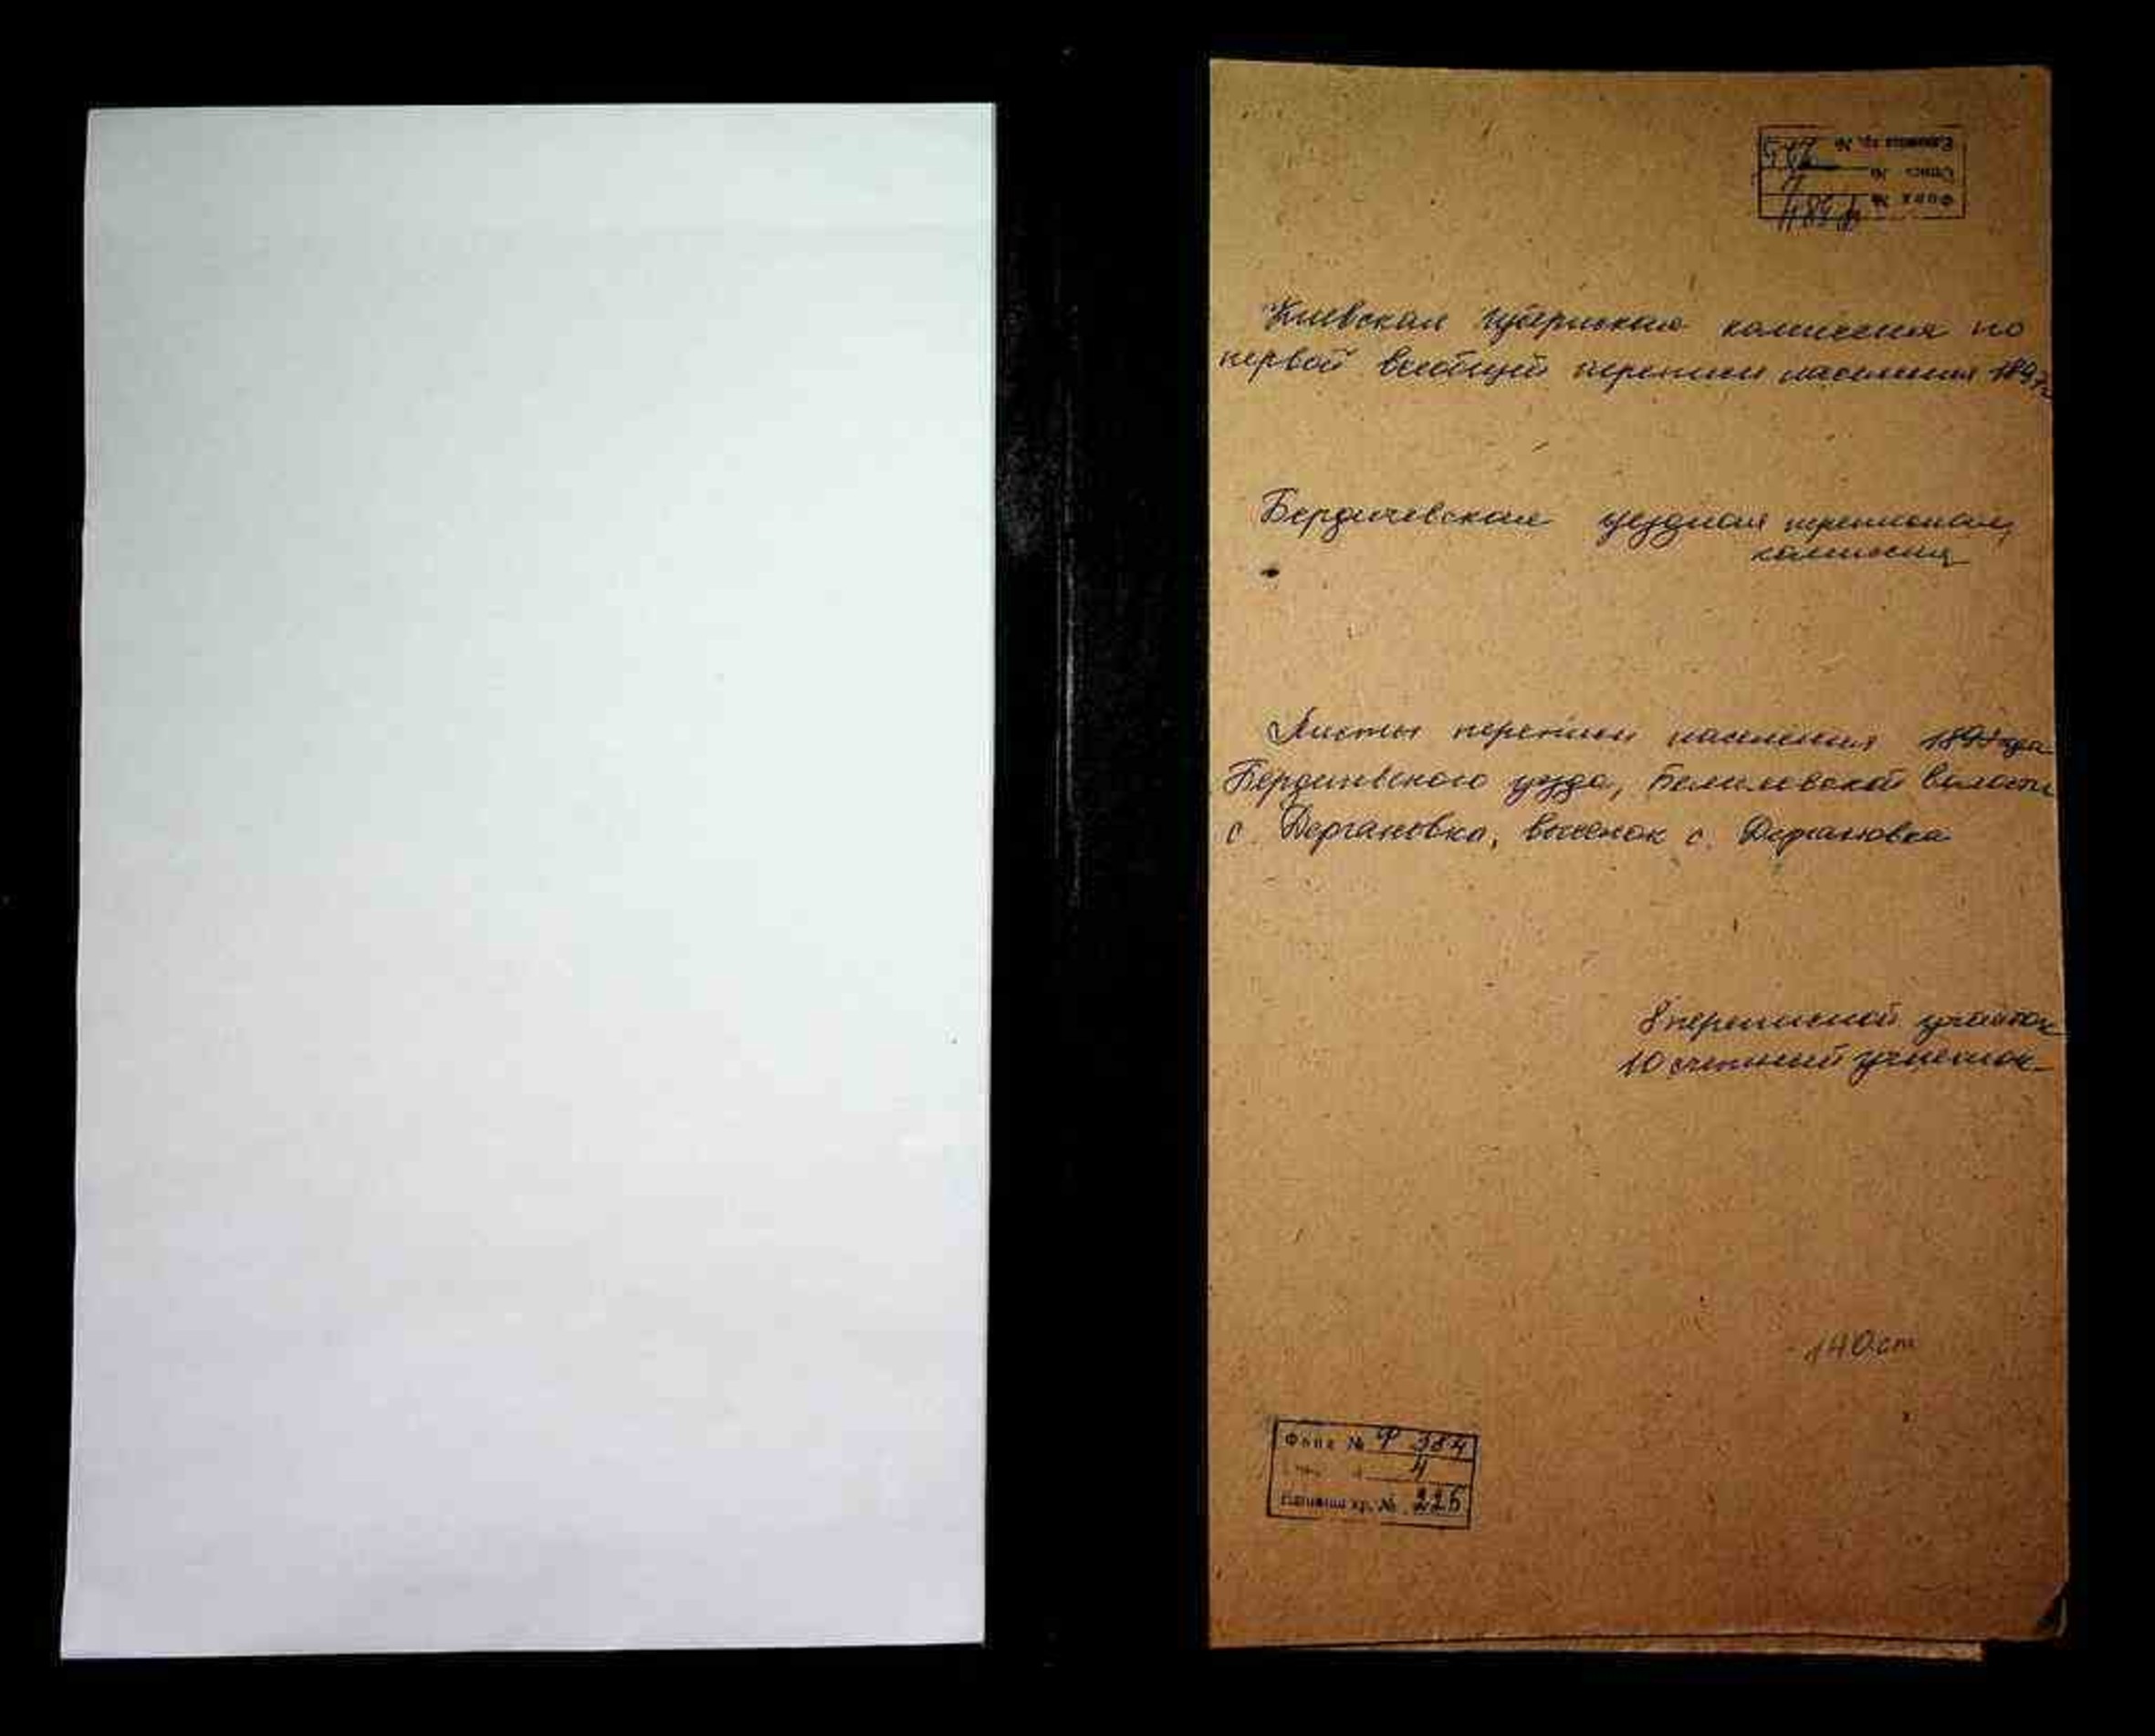 Единица хр. №
Опись № 4
Фонд № 484 ф
Киевская губернская комиссия по
первой всеобщей переписи населения 1897 г.
Бердичевская уездная переписная
комиссия
Листы переписи населения 1897 года
Бердичевского уезда, Белиловской волости
с. Дергановка, выселок с. Дергановка
8 переписной участок
10 счетный участок
140 ст
Фонд № Ф 384
4
Единица хр. № 226